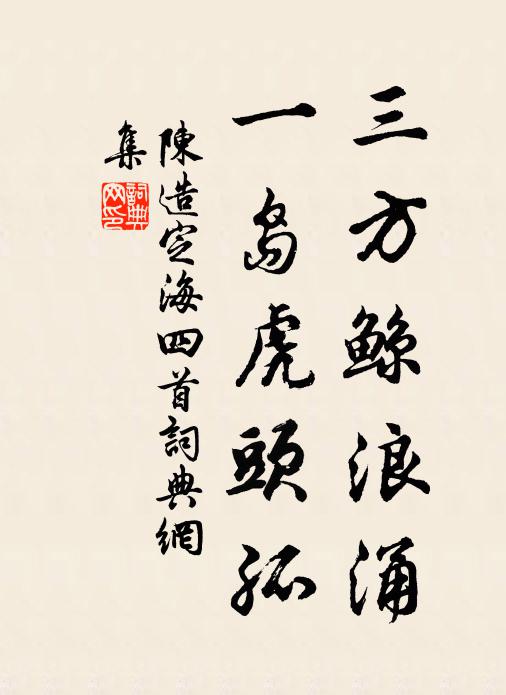 三方鲸浪涌
一島虎頭孤
陳造定海四首詞典網
集
詞典
网印